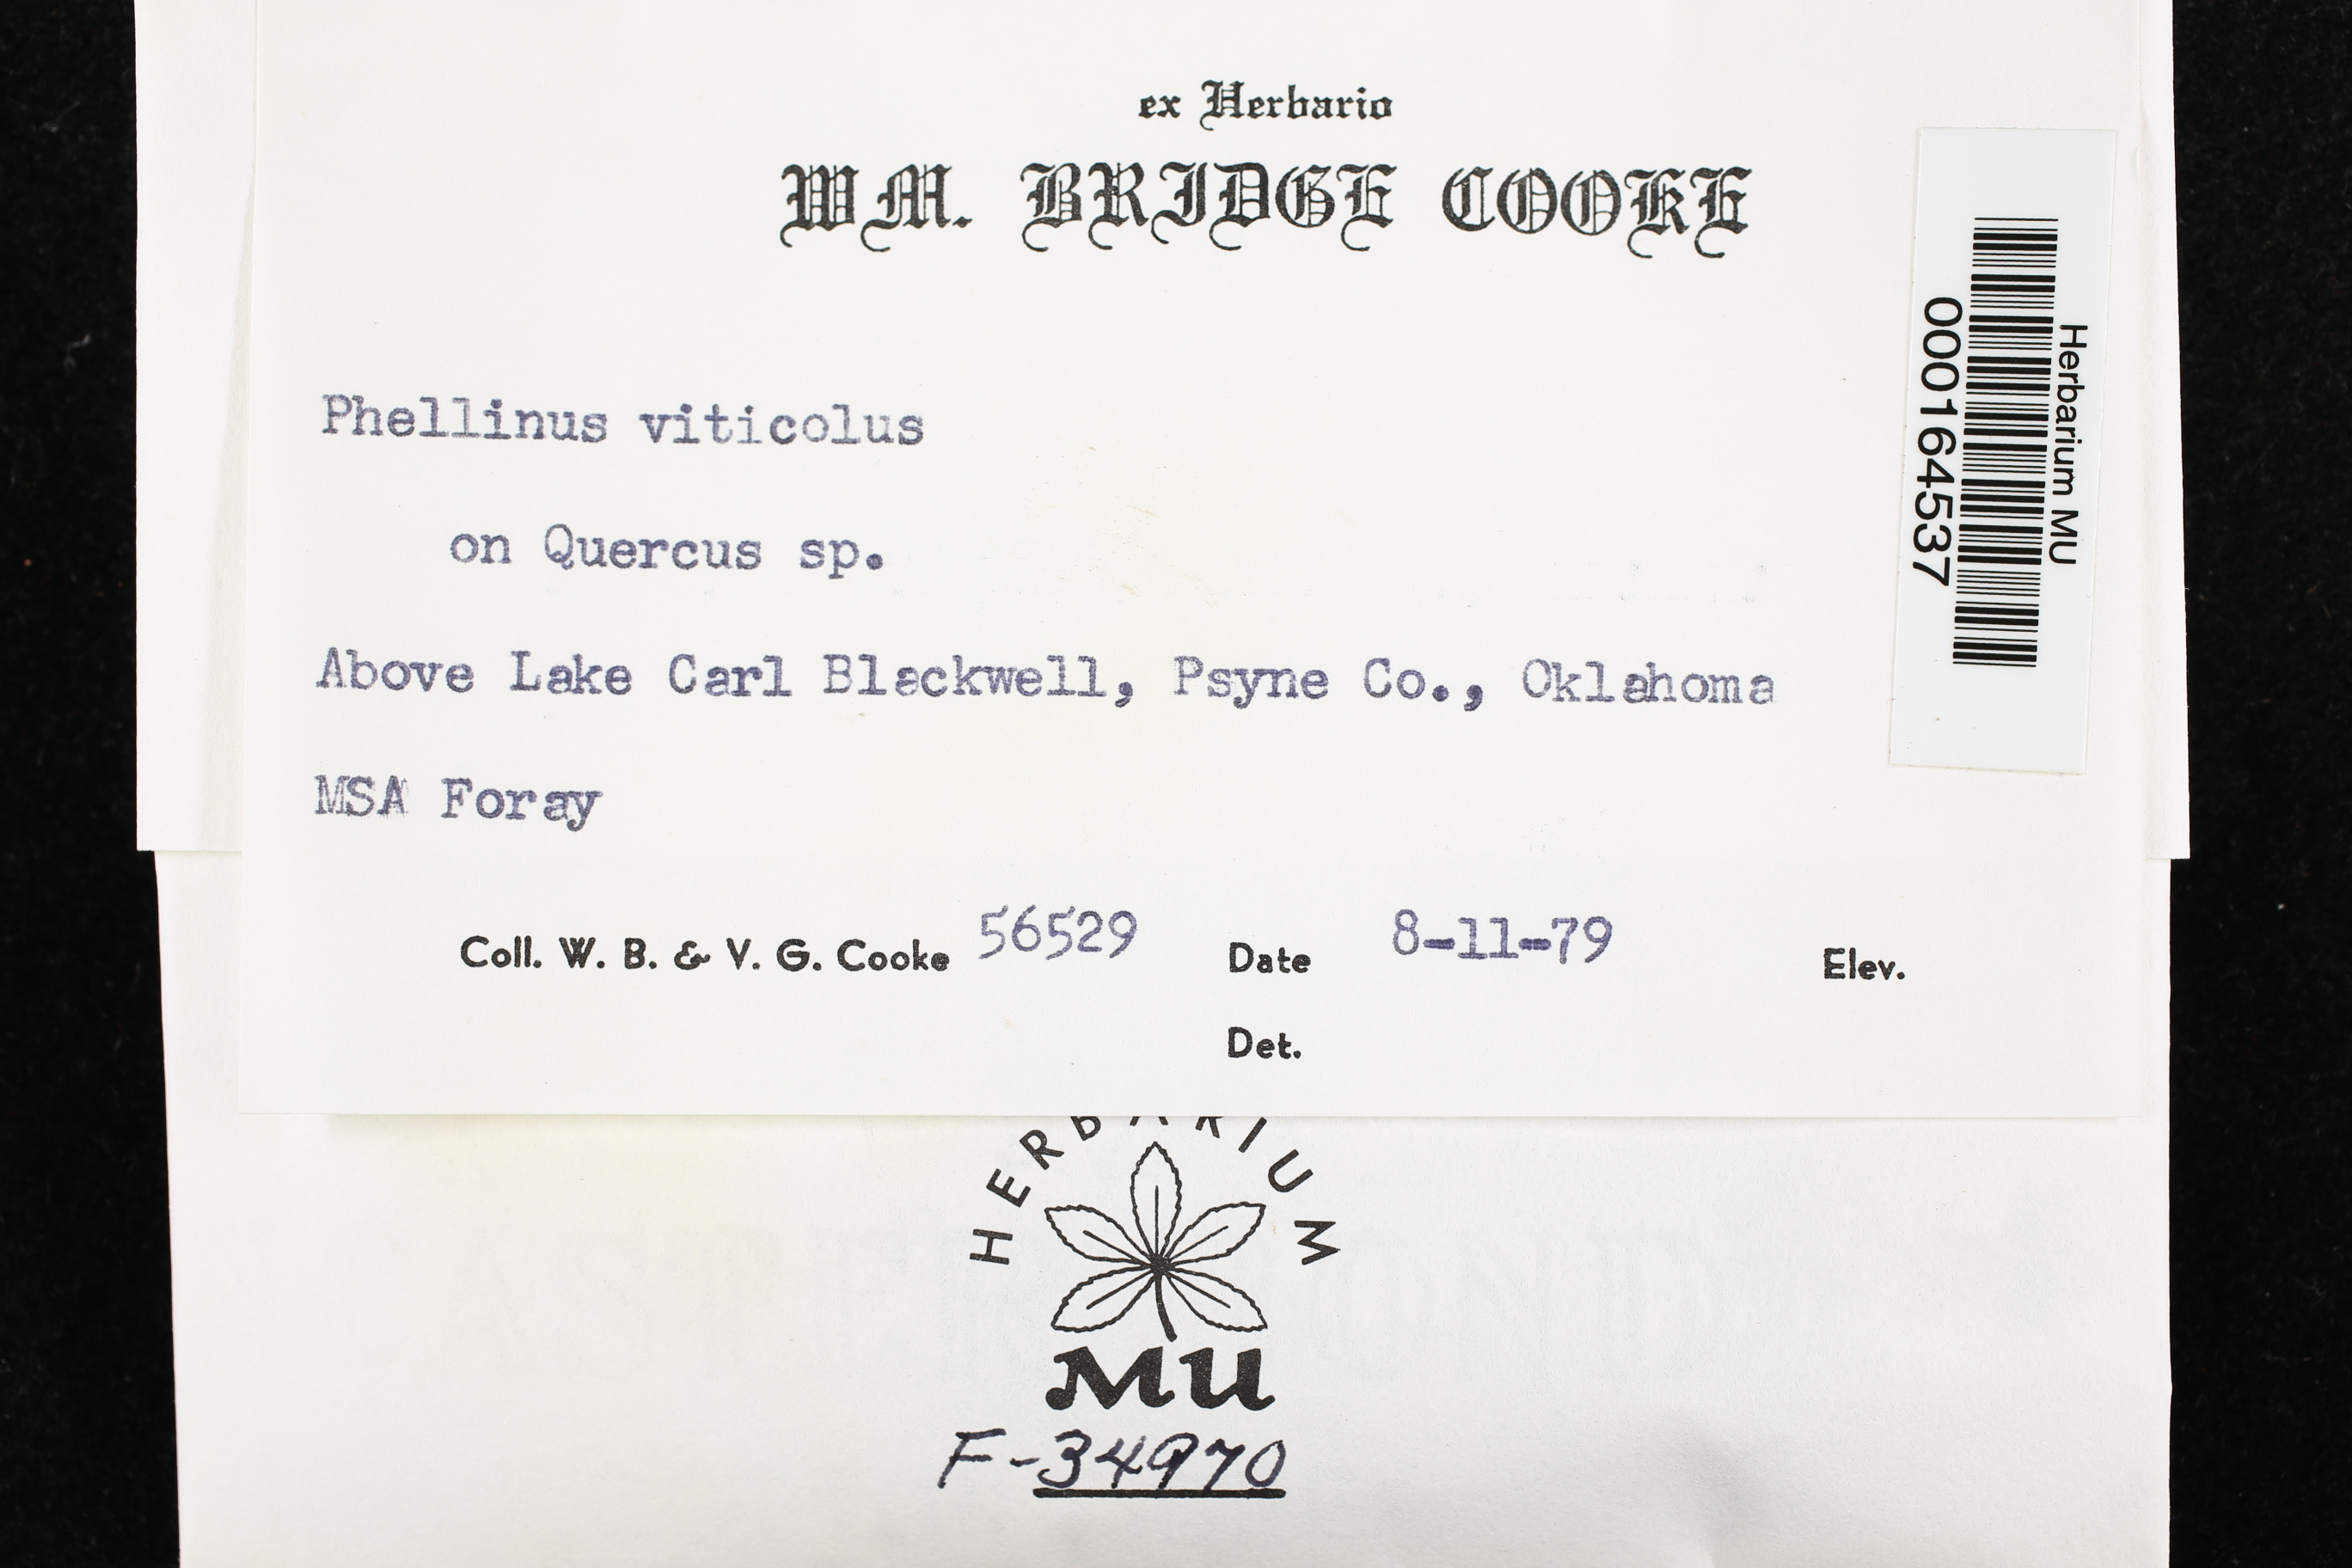 ex Herbario
WM. BRIDGE COOKE
Phellinus viticolus
on Quercus sp.
Above Lake Carl Blackwell, Psyne Co., Oklahoma
MSA Foray
Coll. W. B. & V. G. Cooke 56529 Date 8-11-79 Elev.
Det.
Herbarium MU
000164537
HERBARIUM
MU
F-34970